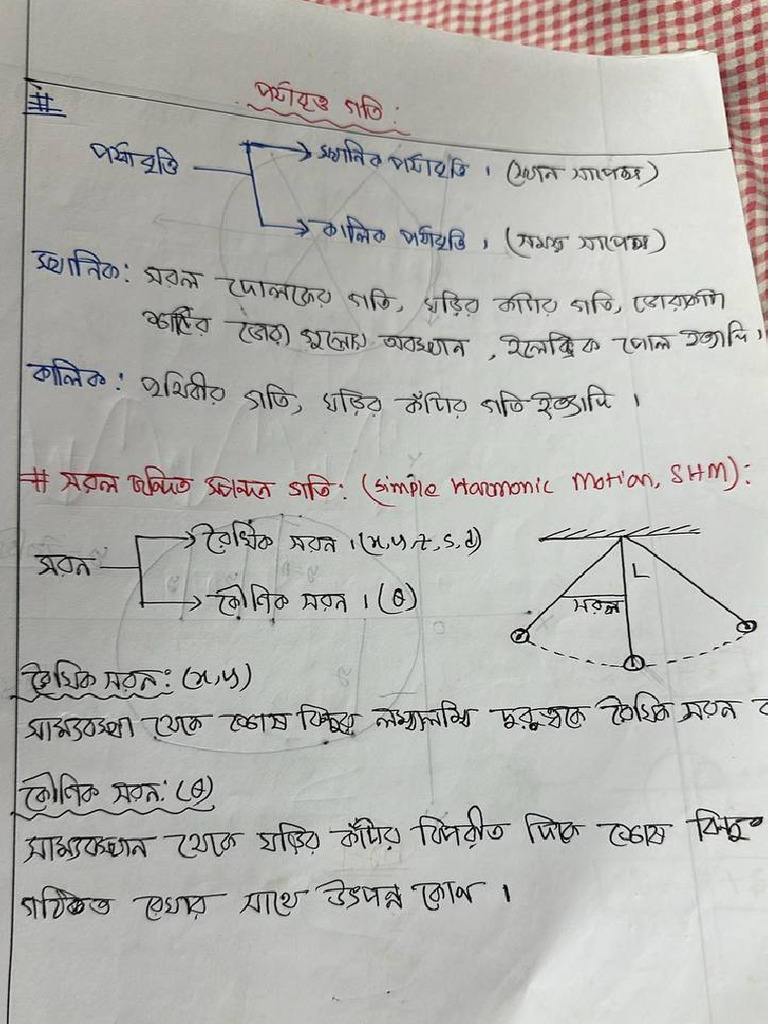 # পর্যাবৃত্ত গতি:
পর্যাবৃত্তি → স্থানিক পর্যাবৃত্তি । (স্থান সাপেক্ষে)
→ কালিক পর্যাবৃত্তি । (সময় সাপেক্ষে)
স্থানিক: সরল দোলকের গতি, ঘড়ির কাঁটার গতি, ডোরাকাটা
শার্টের ডোরা গুলোর অবস্থান, ইলেক্ট্রিক পোল ইত্যাদি।
কালিক: পৃথিবীর গতি, ঘড়ির কাঁটার গতি ইত্যাদি ।
# সরল ছন্দিত স্পন্দন গতি: (Simple Harmonic Motion, SHM):
সরন → রৈখিক সরন । (x, y, r, s, d)
→ কৌণিক সরন । (θ)
L
সরল
রৈখিক সরন: (x,y)
সাম্যবস্থা থেকে শেষ বিন্দুর লম্বালম্বি দূরুত্বকে রৈখিক সরন
কৌণিক সরন: (θ)
সাম্যবস্থান থেকে ঘড়ির কাঁটার বিপরীত দিকে শেষ বিন্দু
গঠিত রেখার সাথে উৎপন্ন কোণ ।